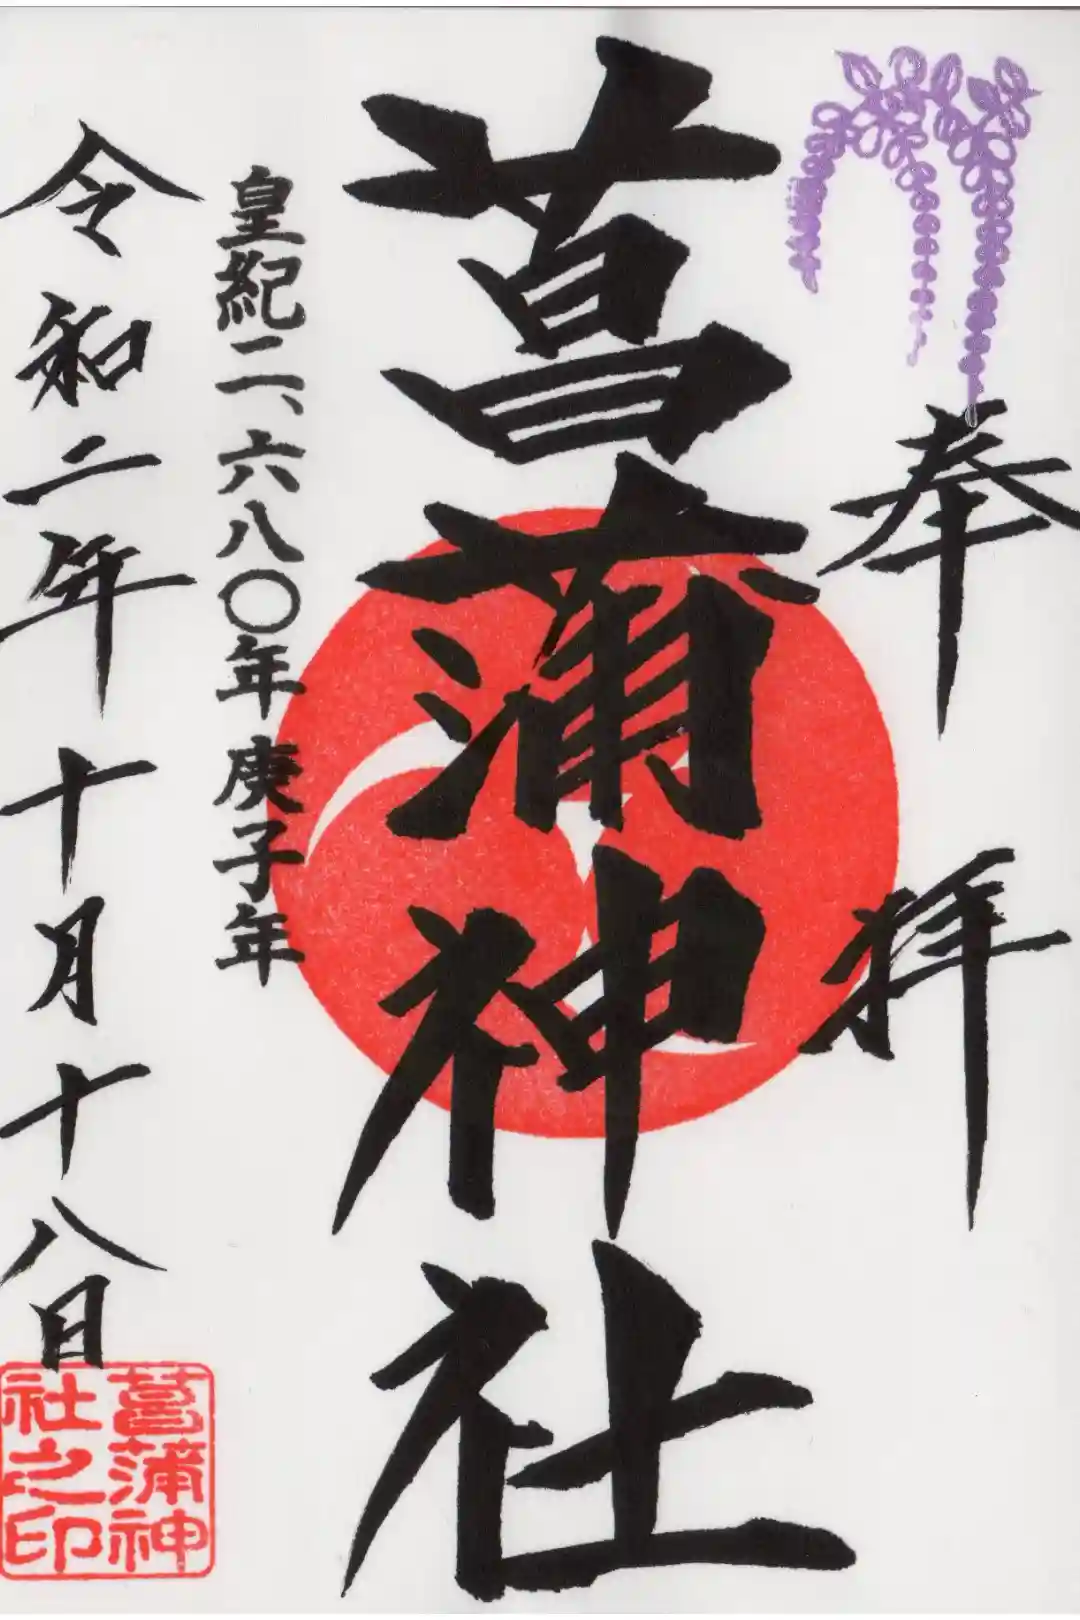 奉拝
菖蒲神社
皇紀二、六八〇年 庚子年
令和二年十月十八日
菖蒲神
社之印